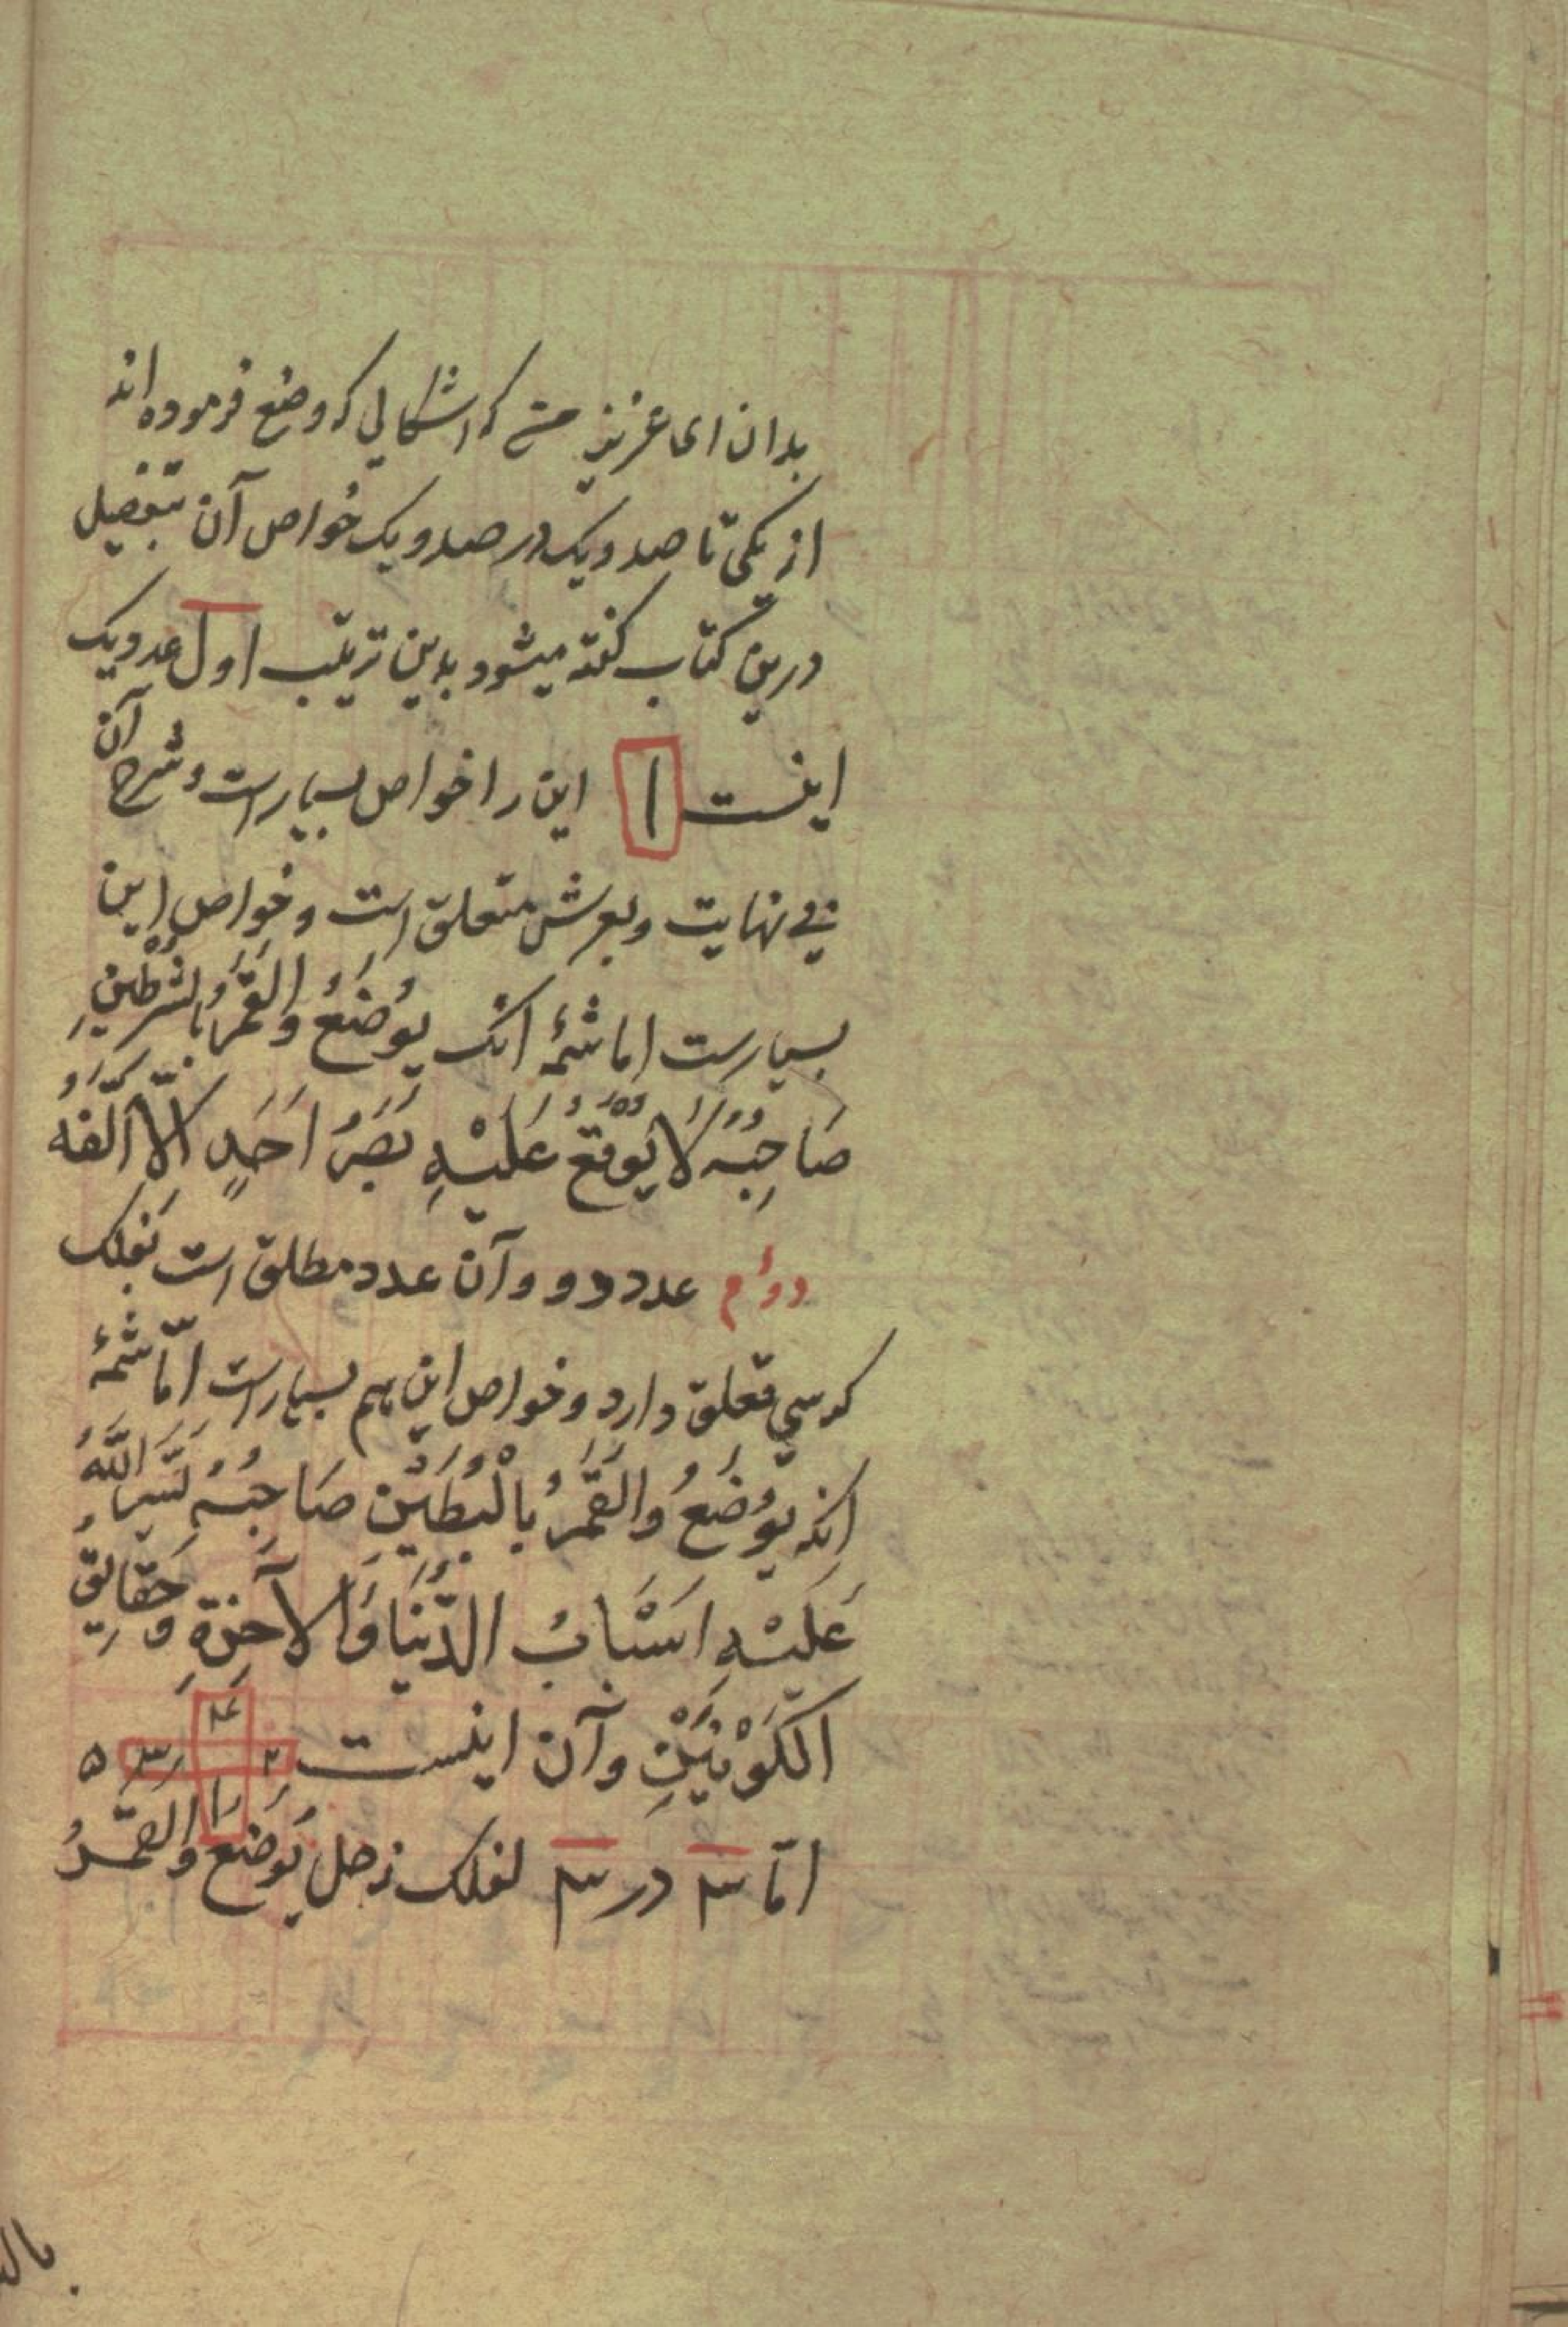 بدان ای عزیز من که اشکالی که وضع فرموده اند
از یکی تا صد و یک در صد و یک خواص آن بتفصیل
درین کتاب گفته میشود بدین ترتیب اول عدد یک
اینست ا این را خواص بسیار است و شرح آن
بی نهایت و بعرش متعلق است و خواص این
بسیارست اما شمهٔ انک یُوضَعُ وَالقَمَرُ بِالشَّرَطَیْنِ
صَاحِبُهُ لَا یَوْقَعُ عَلَیْهِ بَصَرُ اَحَدٍ اِلَّا اَلَّفَهُ
دوم عدد دو و آن عدد مطلق است بفلک
کرسی تعلق دارد و خواص این هم بسیار است امّا شمهٔ
انکه یُوضَعُ وَالقَمَرُ بِالْبُطَیْن صَاحِبُهُ یَسَّرَ اللهُ
عَلَیْهِ اَسْبَابُ الدُّنْیَا وَالآخِرَةِ وَحَقَایِقِ
الکَوْنَیْنِ و آن اینست ۴ ۲ ۳ ۱ ۵
امّا ۳ در ۳ بفلک زحل یُوضَع وَالقَمَرُ